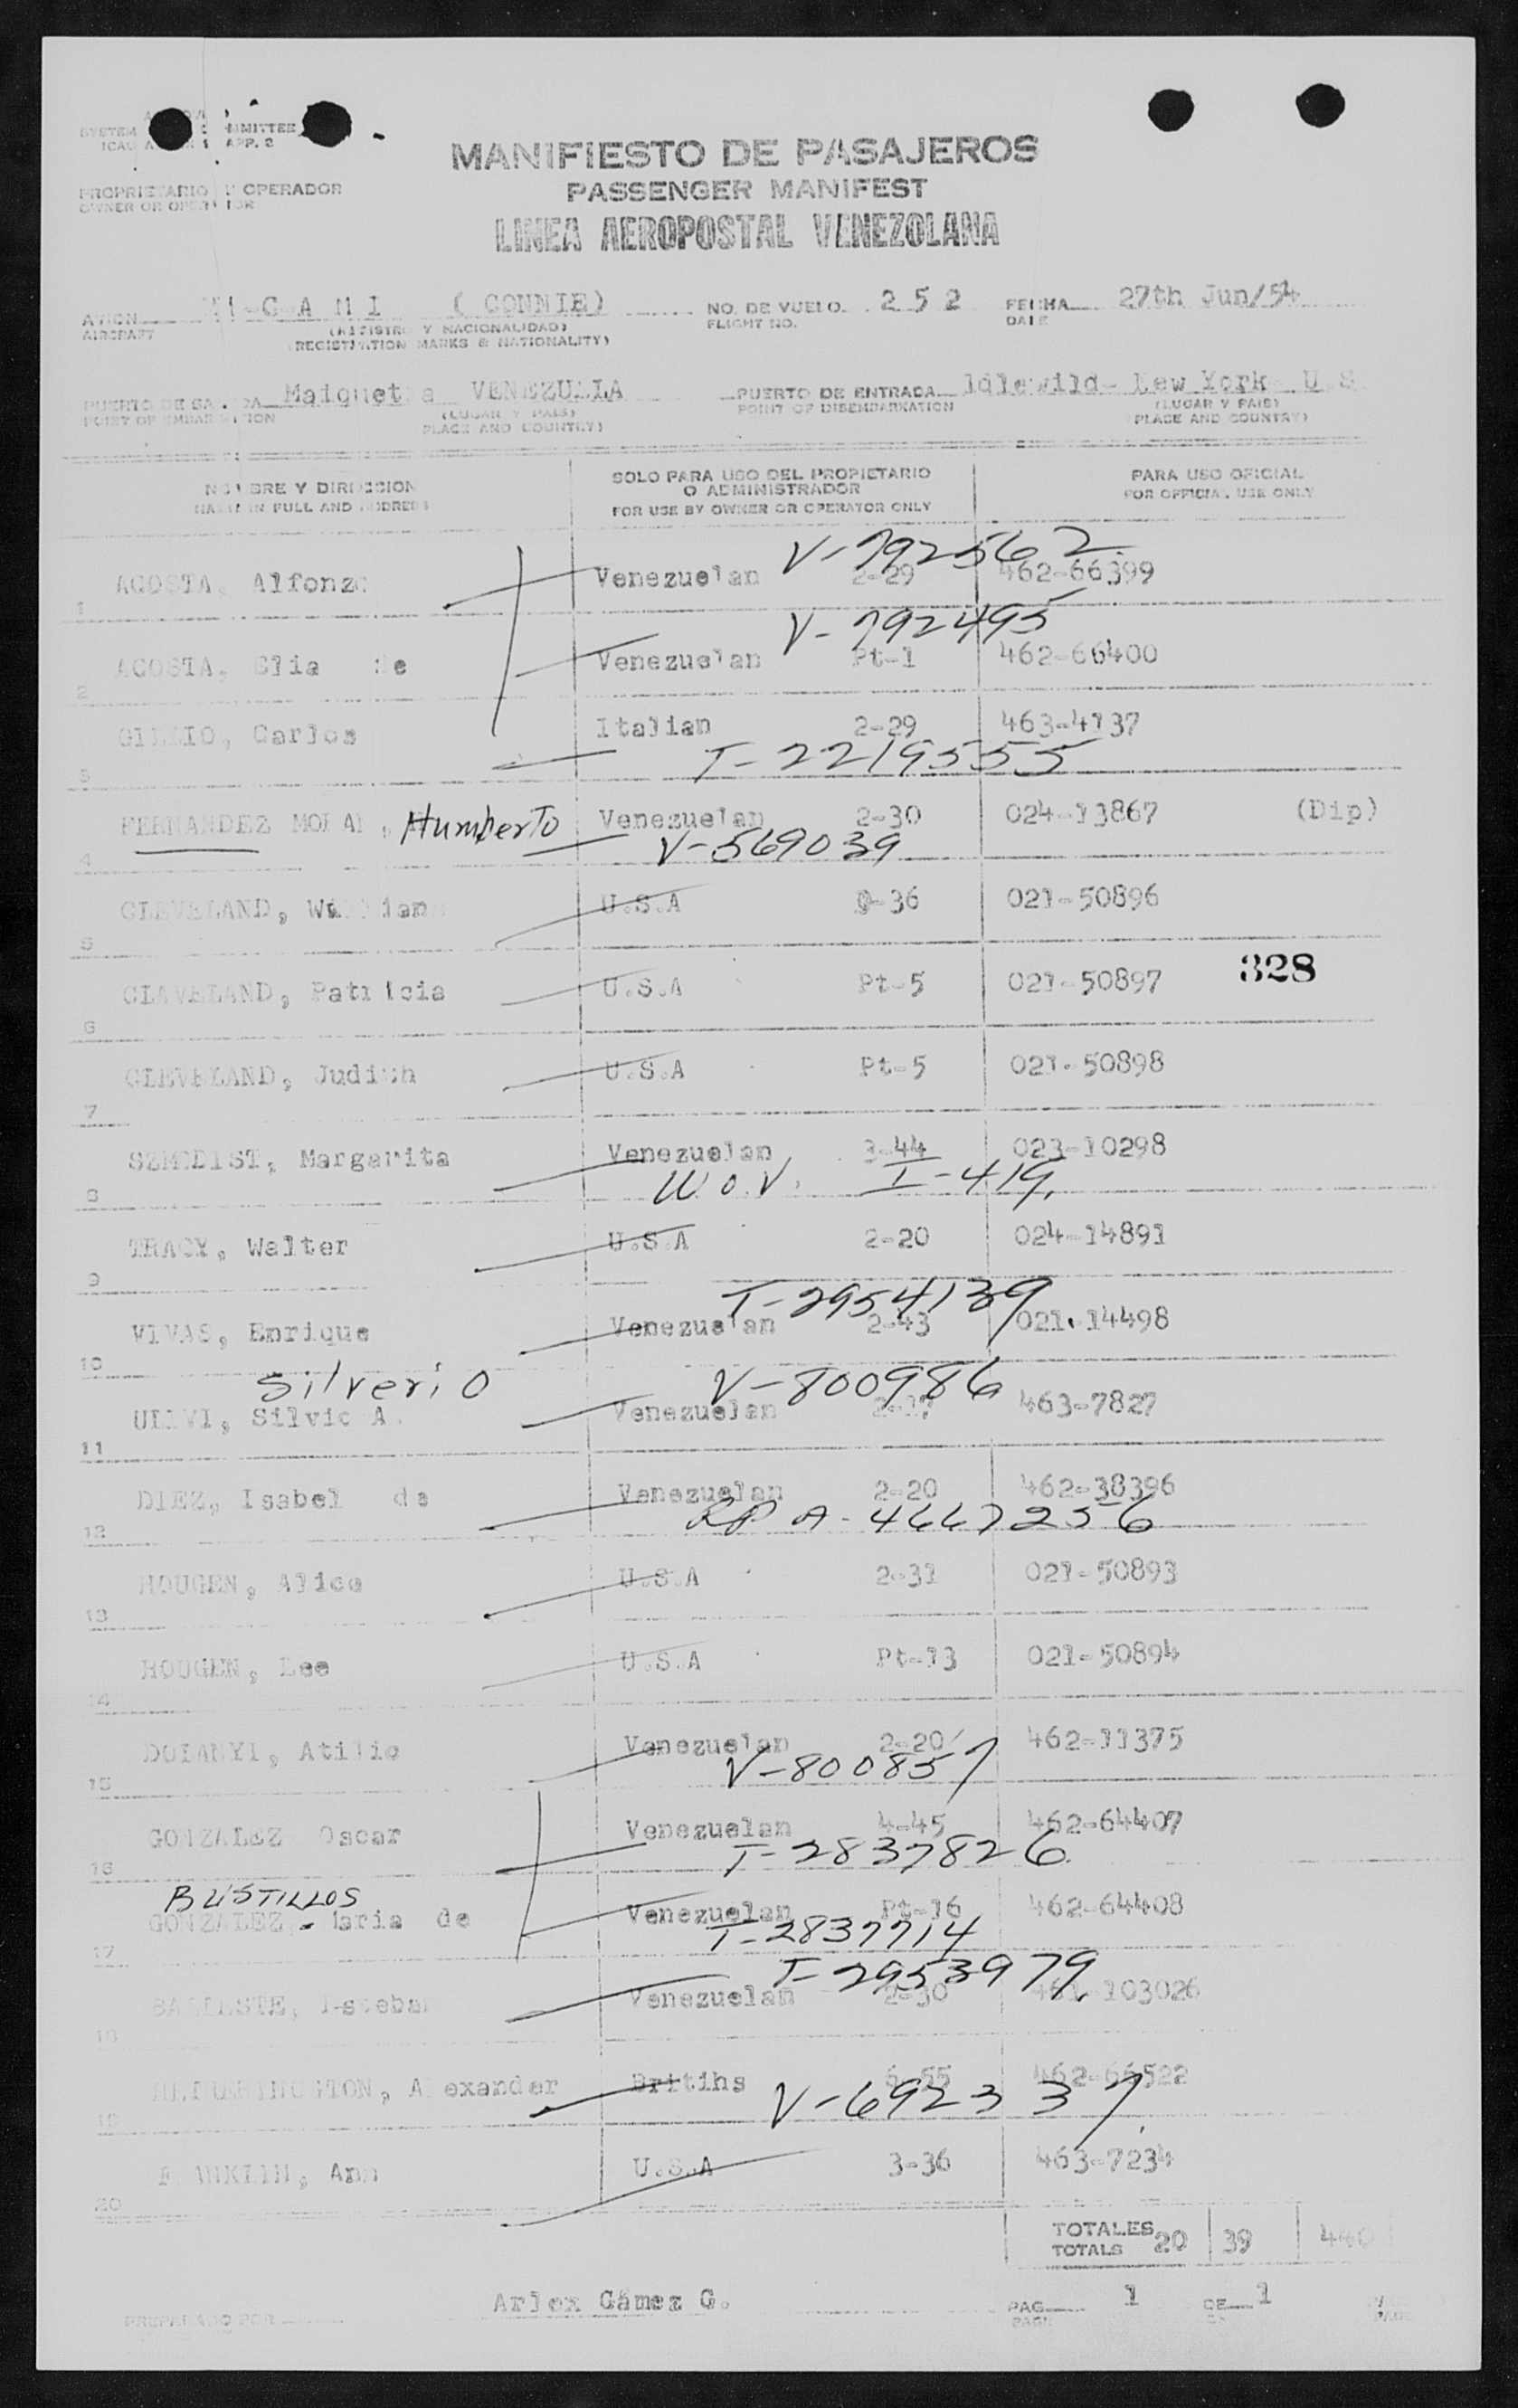 SYSTEM MMITTEE
APP. 2
MANIFIESTO DE PASAJEROS
PASSENGER MANIFEST
LINEA AEROPOSTAL VENEZOLANA
OPERADOR
OWNER OR
AVION AIRCRAFT C A M I ( CONNIE)
(REGISTRO Y NACIONALIDAD)
(REGISTRATION MARKS & NATIONALITY)
NO. DE VUELO 2 5 2
FLIGHT NO.
FECHA 27th Jun/54
DATE
VENEZULLA
(LUGAR Y PAIS)
PLACE AND COUNTRY)
PUERTO DE ENTRADA Idlewild- New York U S
POINT OF DISEMBARKATION
(LUGAR Y PAIS)
PLACE AND COUNTRY)
SOLO PARA USO DEL PROPIETARIO
O ADMINISTRADOR
FOR USE BY OWNER OR OPERATOR ONLY
PARA USO OFICIAL
FOR OFFICIAL USE ONLY
V-792562
1 ACOSTA, Alfonzo Venezuelan 2-29 462-66399
V-792495
2 ACOSTA, Elia de Venezuelan Pt-1 462-66400
3 Carlos Italian 2-29 463-4137
T-2219555
4 FERNANDEZ Humberto Venezuelan 2-30 024-13867 (Dip)
V-569039
5 CLEVELAND, U.S.A -36 021-50896
6 CLAVELAND, Patricia U.S.A Pt-5 021-50897 328
7 CLEVELAND, Judith U.S.A Pt-5 021-50898
8 Margarita Venezuelan 3-44 023-10298
W.O.V. I-419.
9 TRACY, Walter U.S.A 2-20 024-14891
T-2954139
10 VIVAS, Enrique Venezuelan 2-43 021-14498
Silverio V-800986
11 Silvio A. Venezuelan 463-7827
12 DIEZ, Isabel de Venezuelan 2-20 462-38396
RP A-4667256
13 HOUGEN, Alice U.S.A 2-31 021-50893
14 HOUGEN, Lee U.S.A Pt-13 021-50894
15 Atilio Venezuelan 2-20 462-11375
V-800857
16 GONZALEZ Oscar Venezuelan 4-45 462-64407
T-2837826
BUSTILLOS
17 GONZALEZ Maria de Venezuelan Pt-16 462-64408
T-2837714
T-2953979
18 BALLESTE, Esteban Venezuelan 2-30 461-103026
19 Alexander Britihs 6-55 462-66522
V-692337
20 FRANKLIN, Ann U.S.A 3-36 463-7234
TOTALES 20 39 440
TOTALS
PREPARADO POR Arlex Gámez G. PAG 1 DE 1